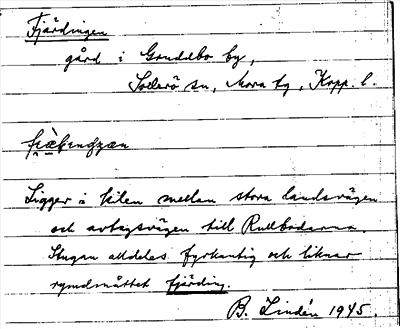 Fjärdingen
gård i Gruddbo by,
Sollerö sn, Mora tg, Kopp. l.
Ligger i kilen mellan stora landsvägen
och avtagsvägen till Rullbodarna.
Stugan alldeles fyrkantig och liknar
rymdmåttet fjärding.
B. Lindén 1945.